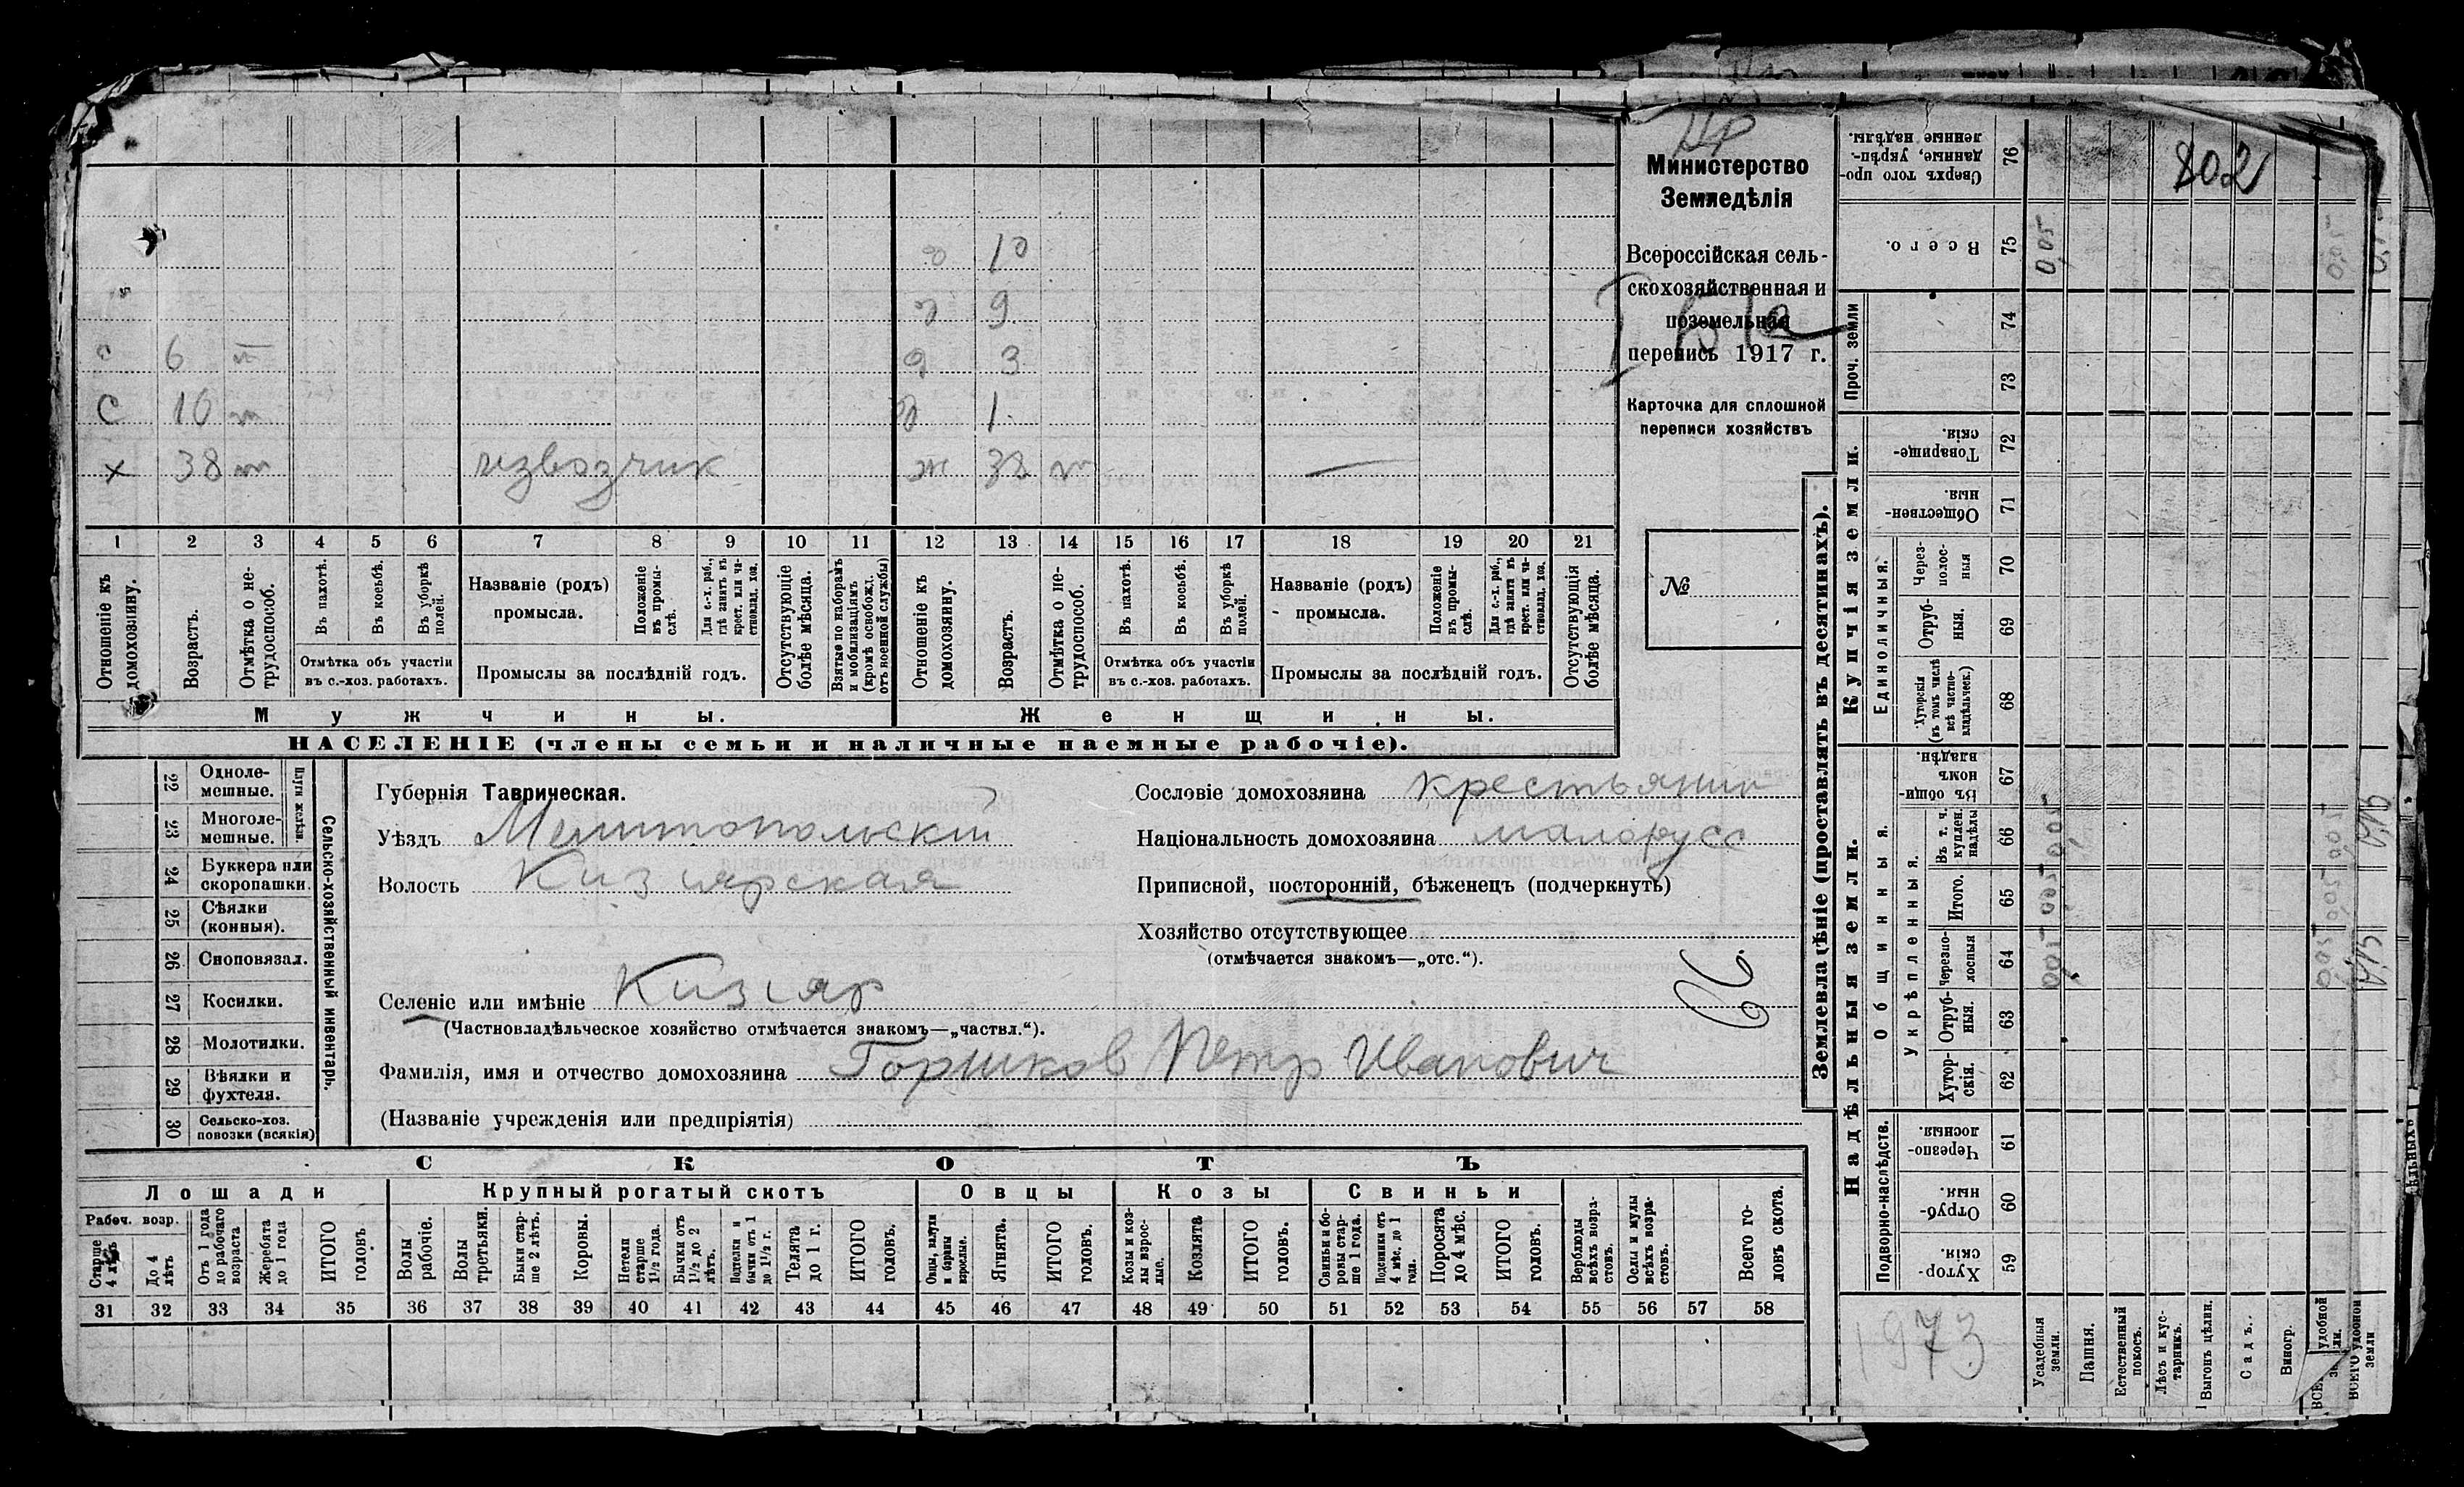 802
Министерство
Земледѣлія
Всероссійская сель-
скохозяйственная и
поземельная
перепись 1917 г.
Карточка для сплошной
переписи хозяйствъ
№
д 10
д 9
с 6 д 3
С 10 д 1
х 38 извозчик ж 38 —
1 2 3 4 5 6 7 8 9 10 11 12 13 14 15 16 17 18 19 20 21
Отношеніе къ домохозяину.
Возрастъ.
Отмѣтка о не-трудоспособ.
Въ пахотѣ.
Въ косьбѣ.
Въ уборкѣ полей.
Отмѣтка объ участіи
въ с.-хоз. работахъ.
Названіе (родъ)
промысла.
Положеніе въ промы-слѣ.
Для с.-х. раб., гдѣ занятъ въ крест. или ча-стновлад. хоз.
Промыслы за послѣдній годъ.
Отсутствующіе болѣе мѣсяца.
Взятые по наборамъ и мобилизаціямъ (кромѣ освобожд. отъ военной службы)
Отношеніе къ домохозяину.
Возрастъ.
Отмѣтка о не-трудоспособ.
Въ пахотѣ.
Въ косьбѣ.
Въ уборкѣ полей.
Отмѣтка объ участіи
въ с.-хоз. работахъ.
Названіе (родъ)
промысла.
Положеніе въ промы-слѣ.
Для с.-х. раб., гдѣ занята въ крест. или ча-стновлад. хоз.
Промыслы за послѣдній годъ.
Отсутствующія болѣе мѣсяца.
Мужчины. Женщины.
НАСЕЛЕНІЕ (члены семьи и наличные наемные рабочіе).
Сельско-хозяйственный инвентарь.
Плуги желѣзн.
22 Одноле-мешные.
23 Многоле-мешные.
24 Буккера или скоропашки.
25 Сѣялки (конныя).
26 Сноповязал.
27 Косилки.
28 Молотилки.
29 Вѣялки и фухтеля.
30 Сельско-хоз. повозки (всякія)
Губернія Таврическая.
Уѣздъ Мелитопольскій
Волость Кизиярская
Селеніе или имѣніе Кизияр
(Частновладѣльческое хозяйство отмѣчается знакомъ—„частвл.“).
Фамилія, имя и отчество домохозяина Горшков Петр Иванович
(Названіе учрежденія или предпріятія)
Сословіе домохозяина крестьянин
Національность домохозяина малорусс
Приписной, посторонній, бѣженецъ (подчеркнуть)
Хозяйство отсутствующее
(отмѣчается знакомъ—„отс.“).
СКОТЪ
Лошади Крупный рогатый скотъ Овцы Козы Свиньи
Рабоч. возр.
Старше 4 лѣтъ
До 4 лѣтъ
Отъ 1 года до рабочаго возраста
Жеребята до 1 года
ИТОГО головъ
Волы рабочіе.
Волы третьяки.
Быки стар-ше 2 лѣтъ.
Коровы.
Нетели старше 1½ года.
Бычки отъ 1½ до 2 лѣтъ.
Подтелки и бычки отъ 1 до 1½ г.
Телята до 1 г.
ИТОГО головъ.
Овцы, валухи и бараны взрослые.
Ягнята.
ИТОГО головъ.
Козы и коз-лы взрос-лые.
Козлята
ИТОГО головъ.
Свиньи и бо-ровы стар-ше 1 года.
Подсвинки отъ 4 мѣс. до 1 года.
Поросята до 4 мѣс.
ИТОГО головъ.
Верблюды всѣхъ возра-стовъ.
Ослы и мулы всѣхъ возра-стовъ.
Всего го-ловъ скота.
31 32 33 34 35 36 37 38 39 40 41 42 43 44 45 46 47 48 49 50 51 52 53 54 55 56 57 58
Землевладѣніе (проставлять въ десятинахъ).
Надѣльныя земли. Купчія земли. Проч. земли
Подворно-наслѣдств.
Общинныя.
Укрѣпленныя.
Единоличныя.
Сверхъ того про-данные, укрѣп-ленные надѣлы. 76
Всего. 75
74
73
Товарище-скія. 72
Обществен-ныя. 71
Через-полос-ныя 70
Отруб-ныя. 69
Хуторскія (въ томъ числѣ всѣ частно-владѣльческ.) 68
Въ общин-номъ владѣн. 67
Въ т. ч. куплен. надѣлы 66
Итого. 65
Черезпо-лосныя 64
Отруб-ныя. 63
Хутор-скія. 62
Черезпо-лосныя. 61
Отруб-ныя. 60
Хутор-скія. 59
0,05
1973
Усадебныя земли.
Пашня.
Естественный покосъ.
Лѣсъ и кус-тарникъ.
Выгонъ цѣлин.
Садъ.
Виногр.
ВСЕГО удобной земли